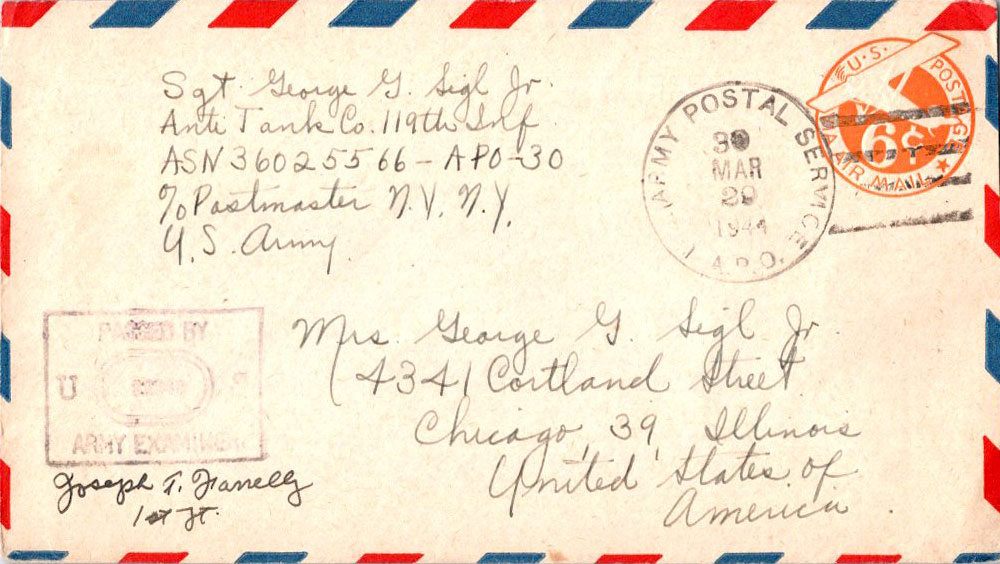 Sgt. George G. Sigl Jr.
Anti Tank Co. 119th Inf
ASN 36025566 - APO-30
c/o Postmaster N.Y. N.Y.
U.S. Army
U.S. ARMY POSTAL SERVICE
30
MAR
29
1944
A.P.O.
U.S. POSTAGE
6¢
AIR MAIL
PASSED BY
U S
ARMY EXAMINER
Joseph T. Farrelly
1st Lt.
Mrs. George G. Sigl Jr.
4341 Cortland Street
Chicago, 39, Illinois
United States of
America